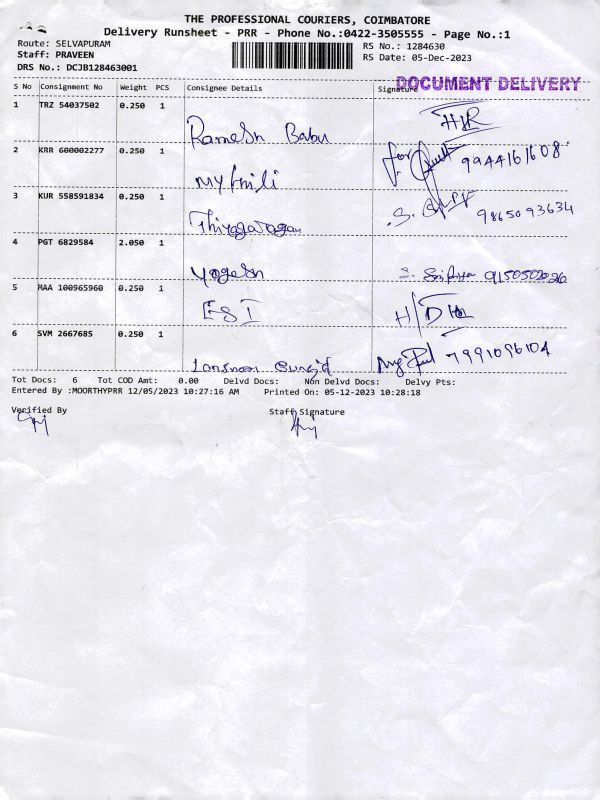 THE PROFESSIONAL COURIERS, COIMBATORE
Delivery Runsheet - PRR - Phone No.:0422-3505555 - Page No.:1
Route: SELVAPURAM
RS No.: 1284630
Staff: PRAVEEN
RS Date: 05-Dec-2023
DRS No.: DCJB128463001
DOCUMENT DELIVERY
S No Consignment No Weight PCS Consignee Details Signature
1 TRZ 54037502 0.250 1
Ramesh Babu
2 KRR 600002277 0.250 1
for 9944161608
3 KUR 558591834 0.250 1
Thiyagarajan 9865093634
4 PGT 6829584 2.050 1
Yogesh
5 MAA 100965960 0.250 1
ESI
6 SVM 2667685 0.250 1
7991096104
Tot Docs: 6 Tot COD Amt: 0.00 Delvd Docs: Non Delvd Docs: Delvy Pts:
Entered By :MOORTHYPRR 12/05/2023 10:27:16 AM Printed On: 05-12-2023 10:28:18
Verified By Staff Signature